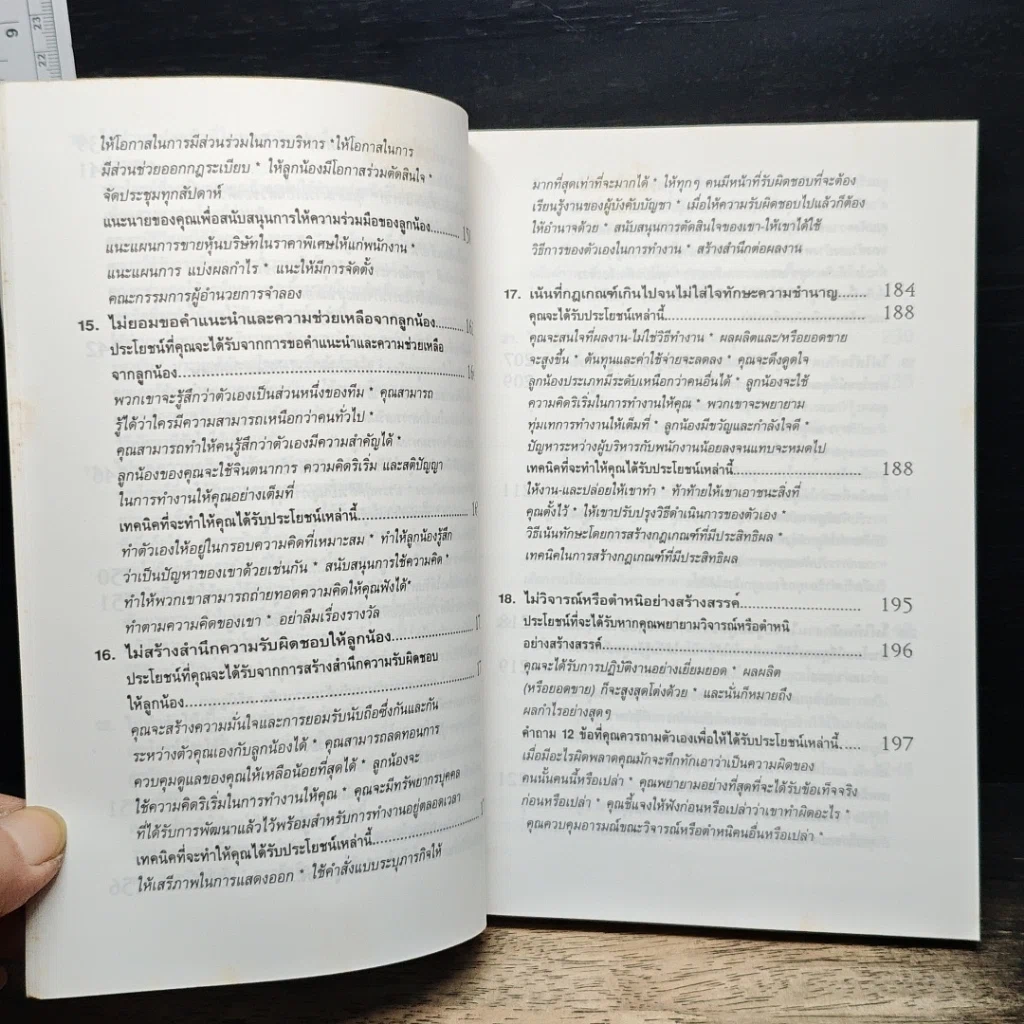 9
23
22
ให้โอกาสในการมีส่วนร่วมในการบริหาร *ให้โอกาสในการ
มีส่วนช่วยออกกฎระเบียบ * ให้ลูกน้องมีโอกาสร่วมตัดสินใจ *
จัดประชุมทุกสัปดาห์
แนะนายของคุณเพื่อสนับสนุนการให้ความร่วมมือของลูกน้อง..........
แนะแผนการขายหุ้นบริษัทในราคาพิเศษให้แก่พนักงาน *
แนะแผนการ แบ่งผลกำไร * แนะให้มีการจัดตั้ง
คณะกรรมการผู้อำนวยการจำลอง
15. ไม่ยอมขอคำแนะนำและความช่วยเหลือจากลูกน้อง..........
ประโยชน์ที่คุณจะได้รับจากการขอคำแนะนำและความช่วยเหลือ
จากลูกน้อง..........
พวกเขาจะรู้สึกว่าตัวเองเป็นส่วนหนึ่งของทีม * คุณสามารถ
รู้ได้ว่าใครมีความสามารถเหนือกว่าคนทั่วไป *
คุณสามารถทำให้คนรู้สึกว่าตัวเองมีความสำคัญได้ *
ลูกน้องของคุณจะใช้จินตนาการ ความคิดริเริ่ม และสติปัญญา
ในการทำงานให้คุณอย่างเต็มที่
เทคนิคที่จะทำให้คุณได้รับประโยชน์เหล่านี้..........
ทำตัวเองให้อยู่ในกรอบความคิดที่เหมาะสม * ทำให้ลูกน้องรู้สึก
ว่าเป็นปัญหาของเขาด้วยเช่นกัน * สนับสนุนการใช้ความคิด *
ทำให้พวกเขาสามารถถ่ายทอดความคิดให้คุณฟังได้ *
ทำตามความคิดของเขา * อย่าลืมเรื่องรางวัล
16. ไม่สร้างสำนึกความรับผิดชอบให้ลูกน้อง..........
ประโยชน์ที่คุณจะได้รับจากการสร้างสำนึกความรับผิดชอบ
ให้ลูกน้อง..........
คุณจะสร้างความมั่นใจและการยอมรับนับถือซึ่งกันและกัน
ระหว่างตัวคุณเองกับลูกน้องได้ * คุณสามารถลดทอนการ
ควบคุมดูแลของคุณให้เหลือน้อยที่สุดได้ * ลูกน้องจะ
ใช้ความคิดริเริ่มในการทำงานให้คุณ * คุณจะมีทรัพยากรบุคคล
ที่ได้รับการพัฒนาแล้วไว้พร้อมสำหรับการทำงานอยู่ตลอดเวลา
เทคนิคที่จะทำให้คุณได้รับประโยชน์เหล่านี้..........
ให้เสรีภาพในการแสดงออก * ใช้คำสั่งแบบระบุภารกิจให้
มากที่สุดเท่าที่จะมากได้ * ให้ทุกๆ คนมีหน้าที่รับผิดชอบที่จะต้อง
เรียนรู้งานของผู้บังคับบัญชา * เมื่อให้ความรับผิดชอบไปแล้วก็ต้อง
ให้อำนาจด้วย * สนับสนุนการตัดสินใจของเขา-ให้เขาได้ใช้
วิธีการของตัวเองในการทำงาน * สร้างสำนึกต่อผลงาน
17. เน้นที่กฎเกณฑ์เกินไปจนไม่ใส่ใจทักษะความชำนาญ....... 184
คุณจะได้รับประโยชน์เหล่านี้.......... 188
คุณจะสนใจที่ผลงาน-ไม่ใช่วิธีทำงาน * ผลผลิตและ/หรือยอดขาย
จะสูงขึ้น * ต้นทุนและค่าใช้จ่ายจะลดลง * คุณจะดึงดูดใจ
ลูกน้องประเภทมีระดับเหนือกว่าคนอื่นได้ * ลูกน้องจะใช้
ความคิดริเริ่มในการทำงานให้คุณ * พวกเขาจะพยายาม
ทุ่มเทการทำงานให้เต็มที่ * ลูกน้องมีขวัญและกำลังใจดี *
ปัญหาระหว่างผู้บริหารกับพนักงานน้อยลงจนแทบจะหมดไป
เทคนิคที่จะทำให้คุณได้รับประโยชน์เหล่านี้.......... 188
ให้งาน-และปล่อยให้เขาทำ * ท้าทายให้เขาเอาชนะสิ่งที่
คุณตั้งไว้ * ให้เขาปรับปรุงวิธีดำเนินการของตัวเอง *
วิธีเน้นทักษะโดยการสร้างกฎเกณฑ์ที่มีประสิทธิผล *
เทคนิคในการสร้างกฎเกณฑ์ที่มีประสิทธิผล
18. ไม่วิจารณ์หรือตำหนิอย่างสร้างสรรค์.......... 195
ประโยชน์ที่จะได้รับหากคุณพยายามวิจารณ์หรือตำหนิ
อย่างสร้างสรรค์.......... 196
คุณจะได้รับการปฏิบัติงานอย่างเยี่ยมยอด * ผลผลิต
(หรือยอดขาย) ก็จะสูงสุดโต่งด้วย * และนั่นก็หมายถึง
ผลกำไรอย่างสุดๆ
คำถาม 12 ข้อที่คุณควรถามตัวเองเพื่อให้ได้รับประโยชน์เหล่านี้..... 197
เมื่อมีอะไรผิดพลาดคุณมักจะทึกทักเอาว่าเป็นความผิดของ
คนนั้นคนนี้หรือเปล่า * คุณพยายามอย่างที่สุดที่จะได้รับข้อเท็จจริง
ก่อนหรือเปล่า * คุณชี้แจงให้ฟังก่อนหรือเปล่าว่าเขาทำผิดอะไร *
คุณควบคุมอารมณ์ขณะวิจารณ์หรือตำหนิคนอื่นหรือเปล่า *